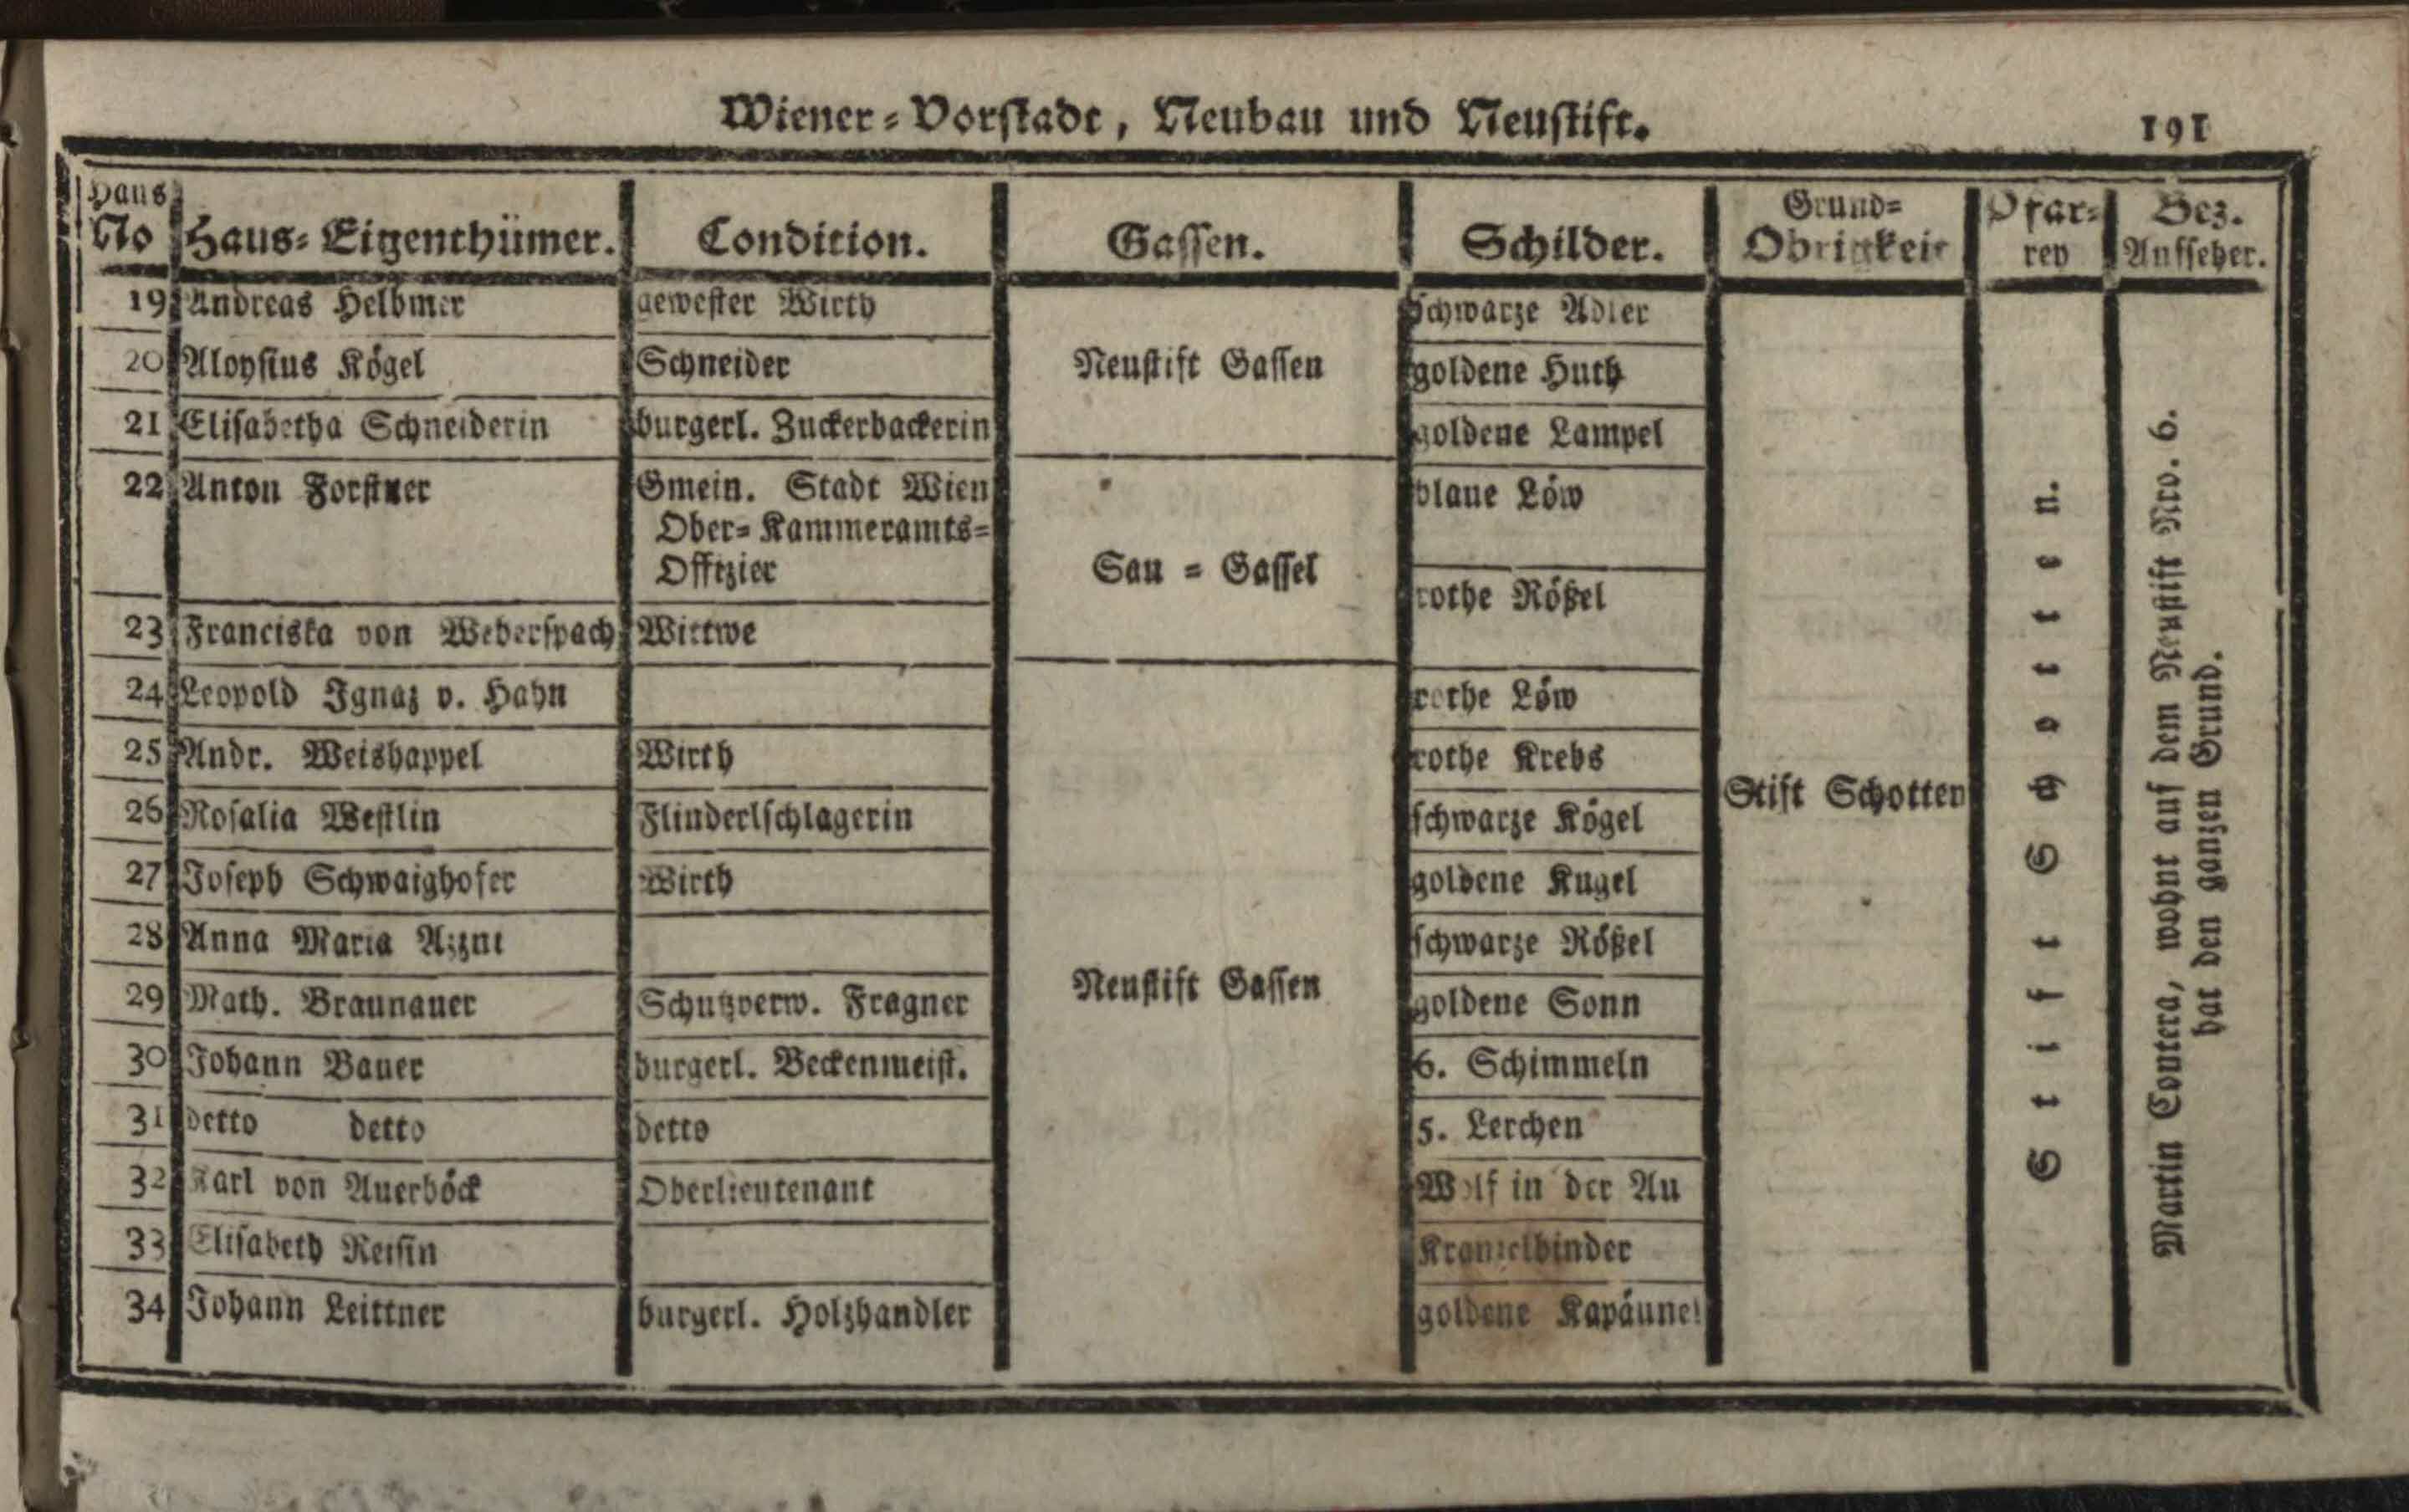 Wiener-Vorstadt, Neubau und Neustift. 191
Haus No Haus-Eigenthümer. Condition. Gassen. Schilder. Grund-Obrigkeit Pfarrey Bez. Aufseher.
19 Andreas Helbmer gewester Wirth schwarze Adler
20 Aloysius Kögel Schneider Neustift Gassen goldene Huth
21 Elisabetha Schneiderin burgerl. Zuckerbackerin goldene Lampel
22 Anton Forstner Gmein. Stadt Wien blaue Löw
Ober-Kammeramts-
Offizier Sau-Gassel
rothe Rößel
23 Franciska von Weberspach Wittwe
24 Leopold Ignaz v. Hahn rothe Löw
25 Andr. Weishappel Wirth rothe Krebs
Stift Schotten
26 Rosalia Westlin Flinderlschlagerin schwarze Kögel
27 Joseph Schwaighofer Wirth goldene Kugel
28 Anna Maria schwarze Rößel
29 Math. Braunauer Schutzverw. Fragner Neustift Gassen goldene Sonn
30 Johann Bauer burgerl. Beckenmeist. 6. Schimmeln
31 detto detto detto 5. Lerchen
32 Karl von Auerböck Oberlieutenant Wolf in der Au
33 Elisabeth Reisin Kranzelbinder
34 Johann Leittner burgerl. Holzhandler goldene Kapäunel
Stift Schotten.
Martin Contera, wohnt auf dem Neustift Nro. 6.
hat den ganzen Grund.